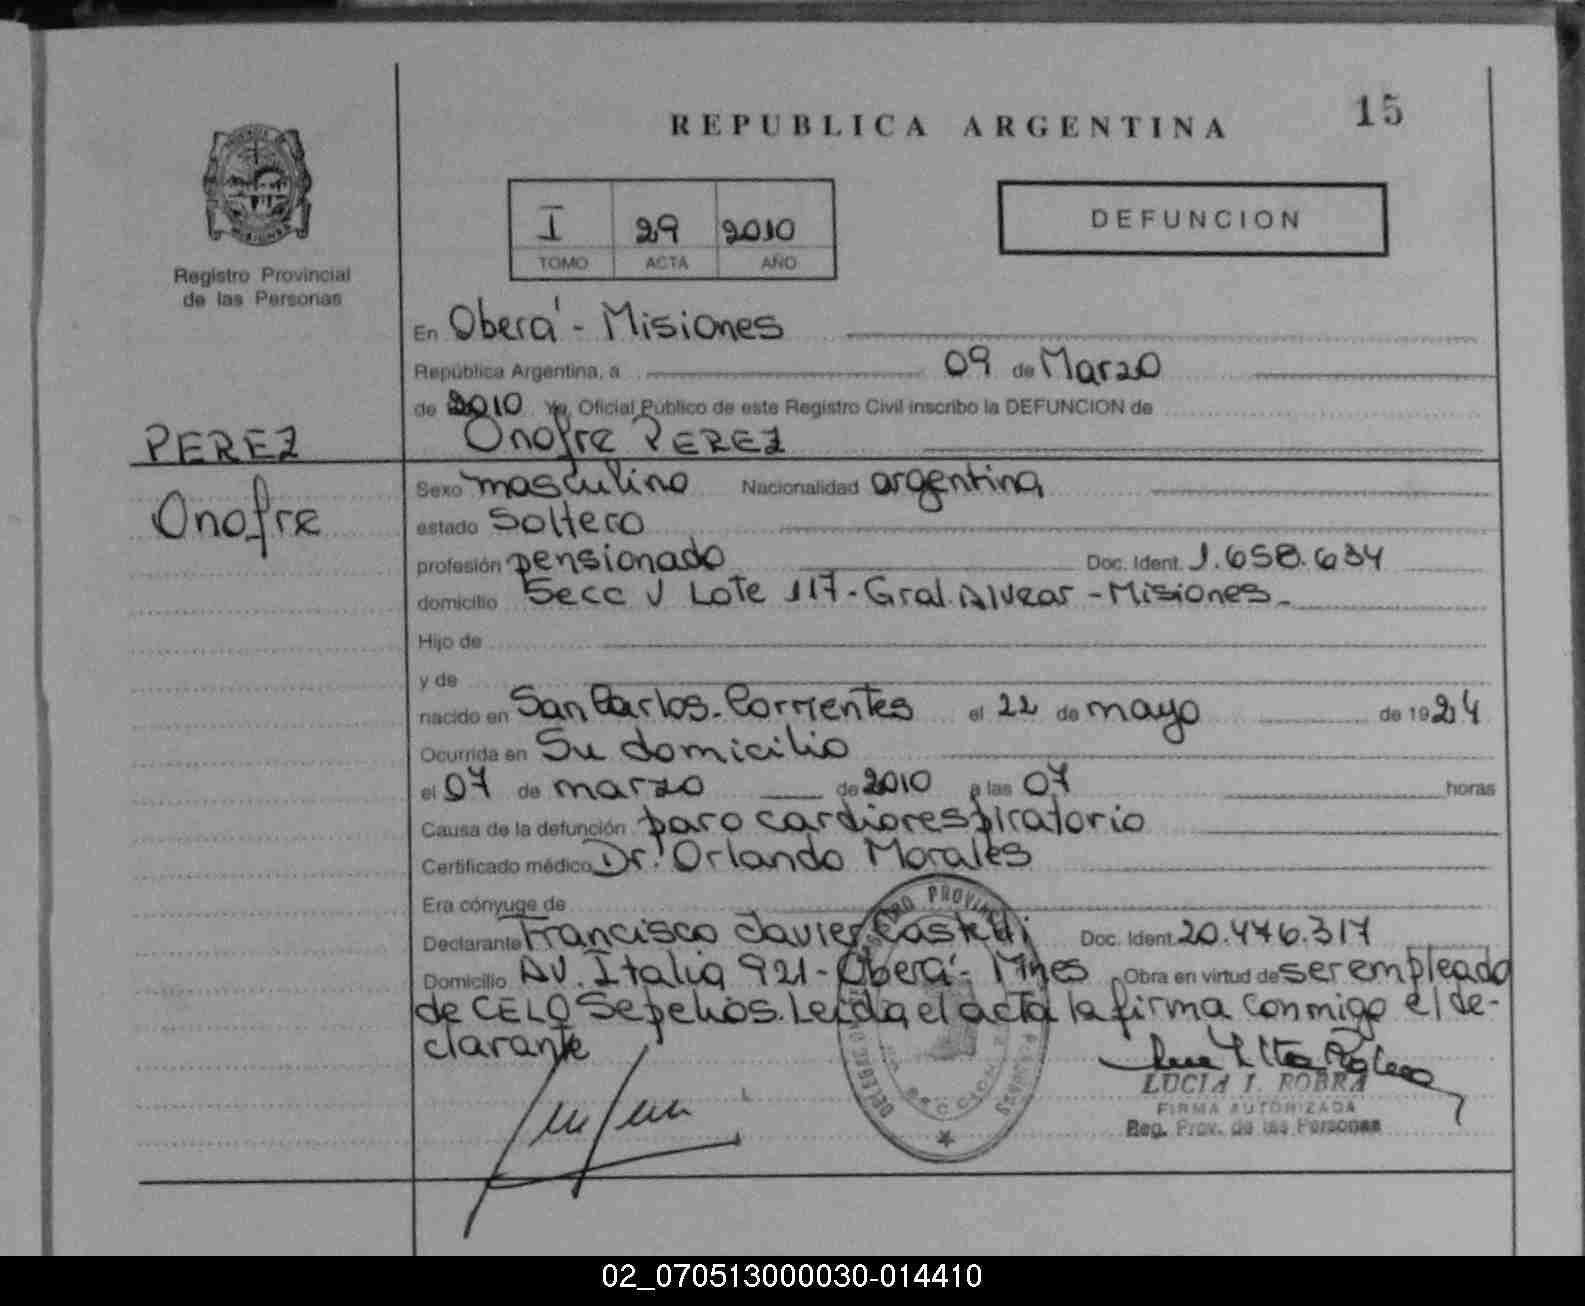 REPUBLICA ARGENTINA
15
I 29 2010
TOMO ACTA AÑO
DEFUNCION
MISIONES
Registro Provincial
de las Personas
En Oberá - Misiones
República Argentina, a 09 de Marzo
de 2010 Yo, Oficial Público de este Registro Civil inscribo la DEFUNCION de
Onofre PEREZ
PEREZ
Onofre
Sexo masculino Nacionalidad argentina
estado Soltero
profesión pensionado Doc. Ident. 1.658.634
domicilio Secc V Lote 117 - Gral. Alvear - Misiones -
Hijo de
y de
nacido en San Carlos - Corrientes el 22 de mayo de 1924
Ocurrida en Su domicilio
el 07 de marzo de 2010 a las 07 horas
Causa de la defunción paro cardiorespiratorio
Certificado médico Dr. Orlando Morales
Era cónyuge de
Declarante Francisco Javier Castelli Doc. Ident. 20.446.317
Domicilio AV. Italia 921 - Oberá - Mnes Obra en virtud de ser empleado
de CELO Sepelios. Leída el acta la firma conmigo el de-
clarante
LUCIA I. ROBRA
FIRMA AUTORIZADA
Reg. Prov. de las Personas
02_070513000030-014410